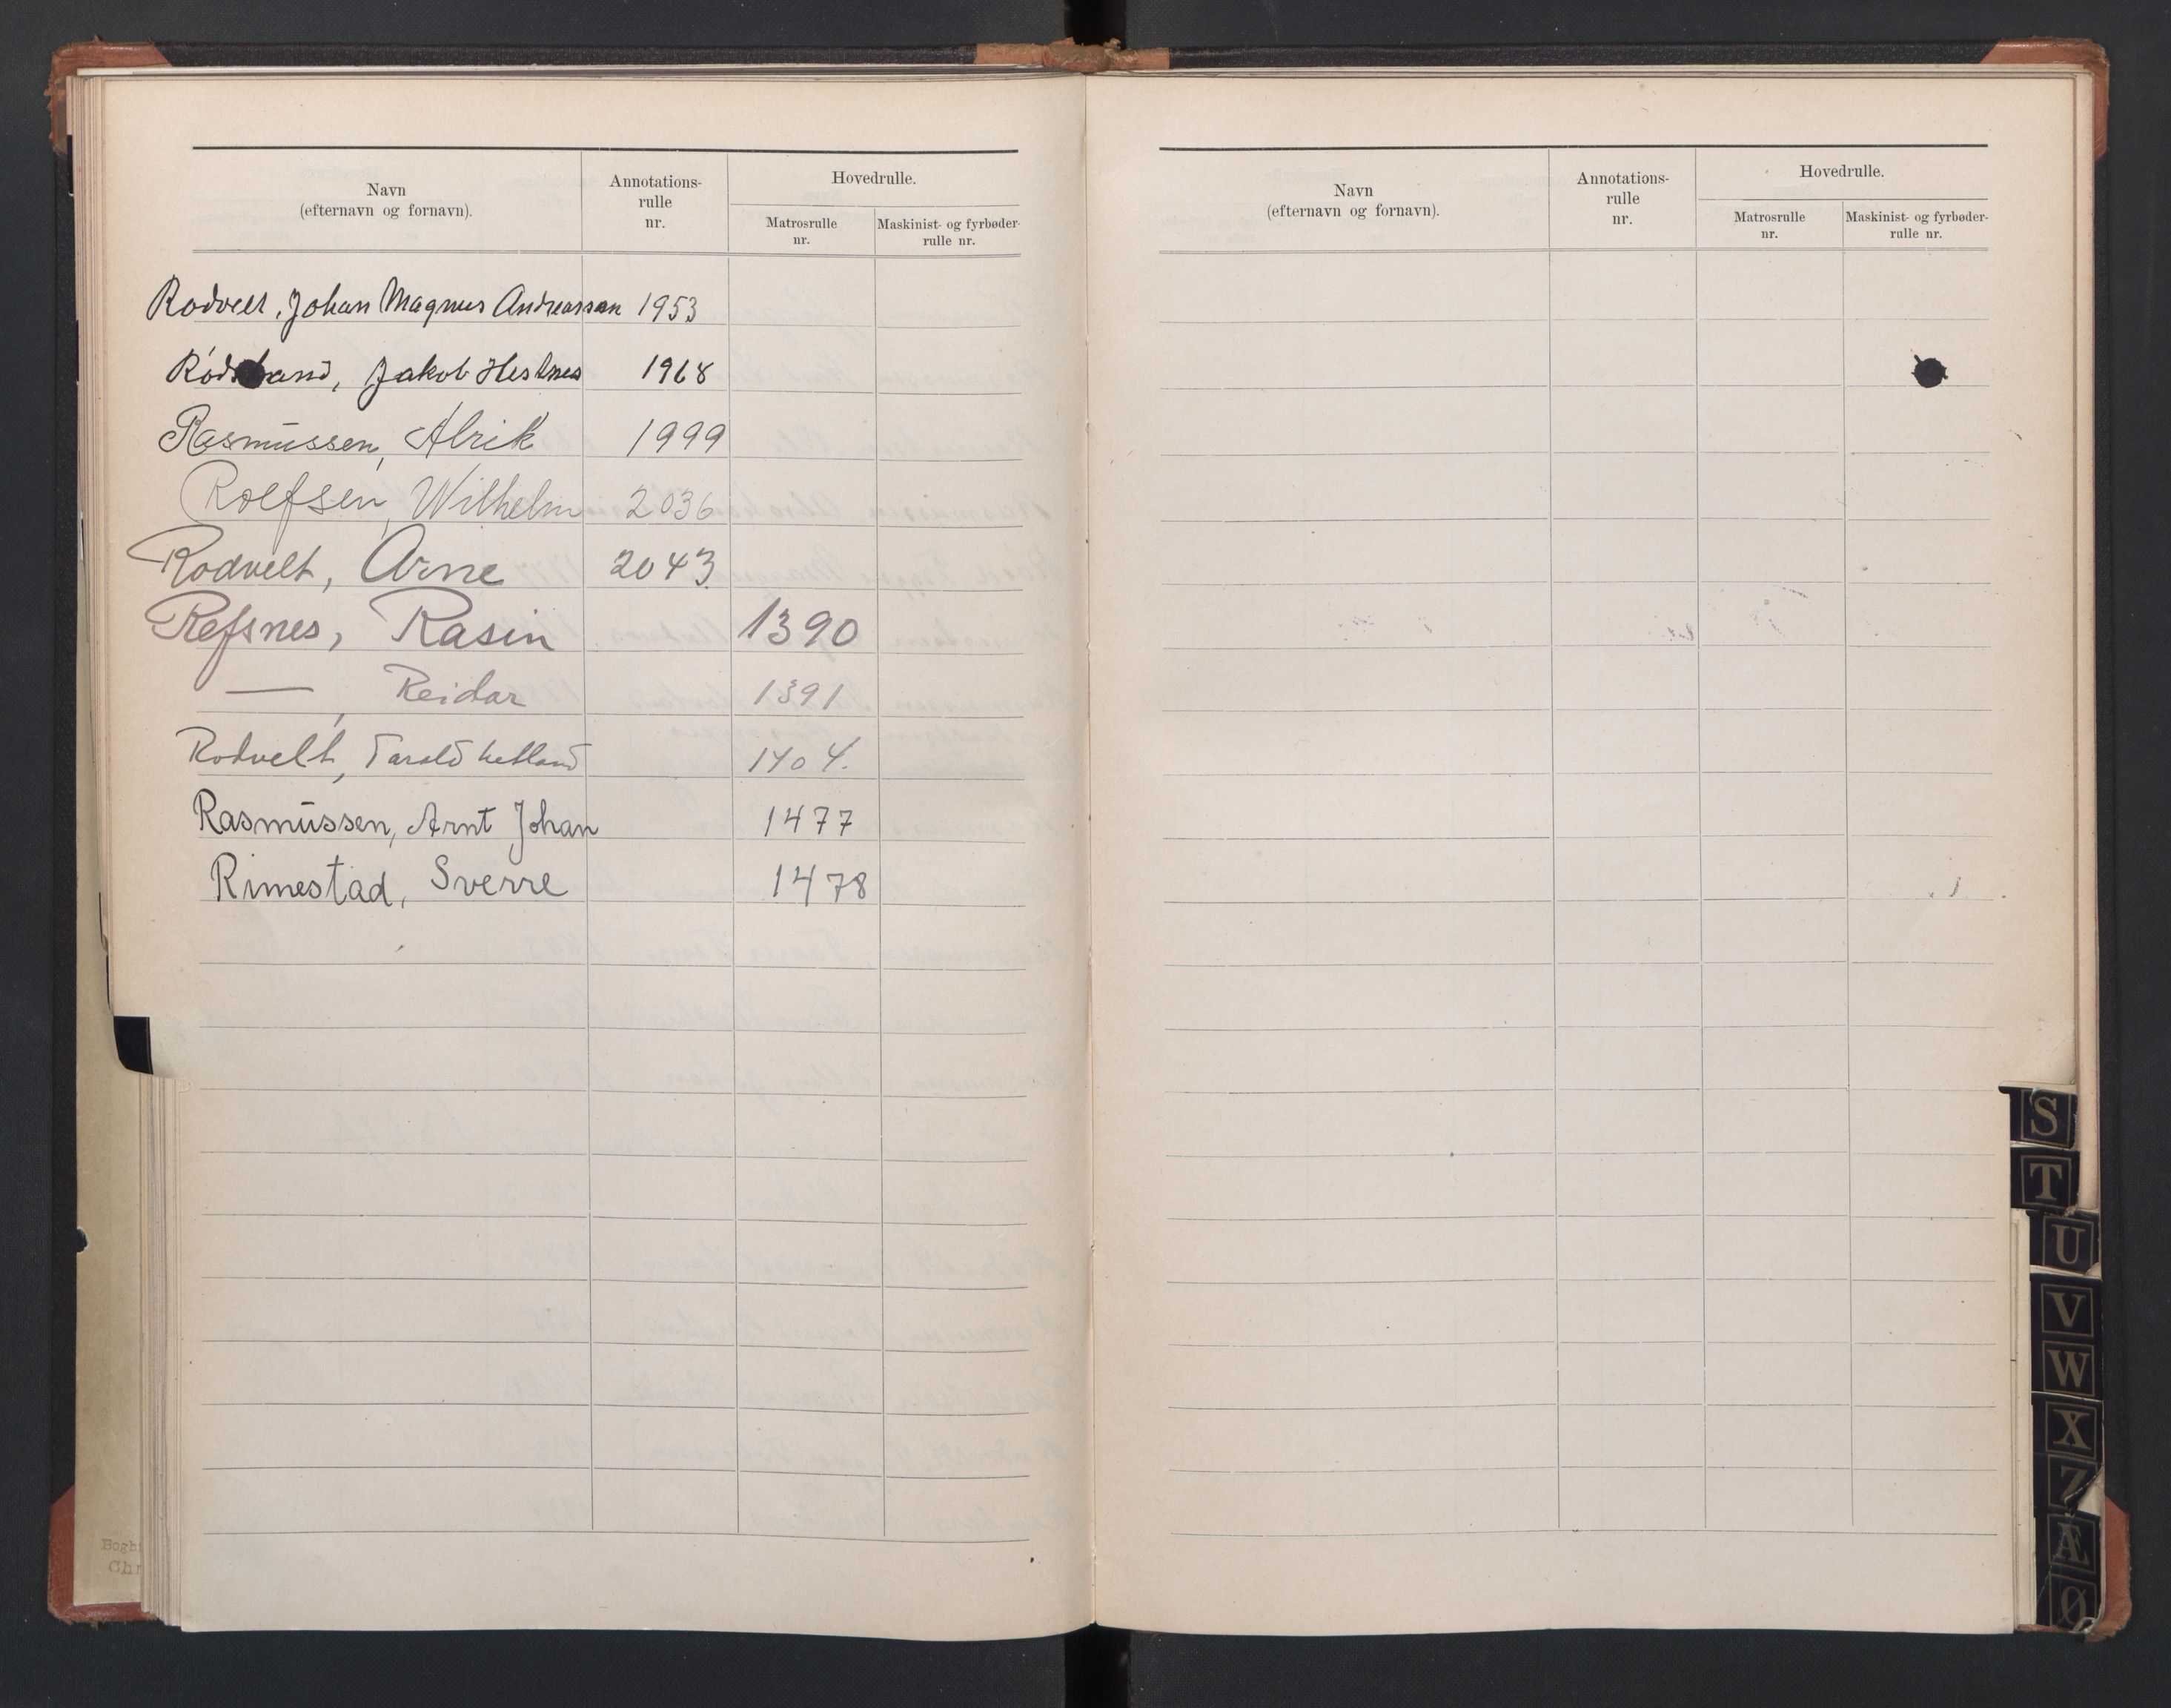 Navn
(efternavn og fornavn).
Annotations-
rulle
nr.
Hovedrulle.
Matrosrulle
nr.
Maskinist- og fyrbøder-
rulle nr.
Rodvelt, Johan Magnus Andreassen 1953
Jakob 1968
Rasmussen, Alrik 1999
Roefsen, Wilhelm 2036
Rodvelt, Arne 2043
Refsnes, Rasin 1390
— Reidar 1391
Rodvelt, Tarald Hetland 1404.
Rasmussen, Arnt Johan 1477
Rimestad, Sverre 1478
Navn
(efternavn og fornavn).
Annotations-
rulle
nr.
Hovedrulle.
Matrosrulle
nr.
Maskinist- og fyrbøder-
rulle nr.
S
T
U
V
W
X
Z
Æ
Ø